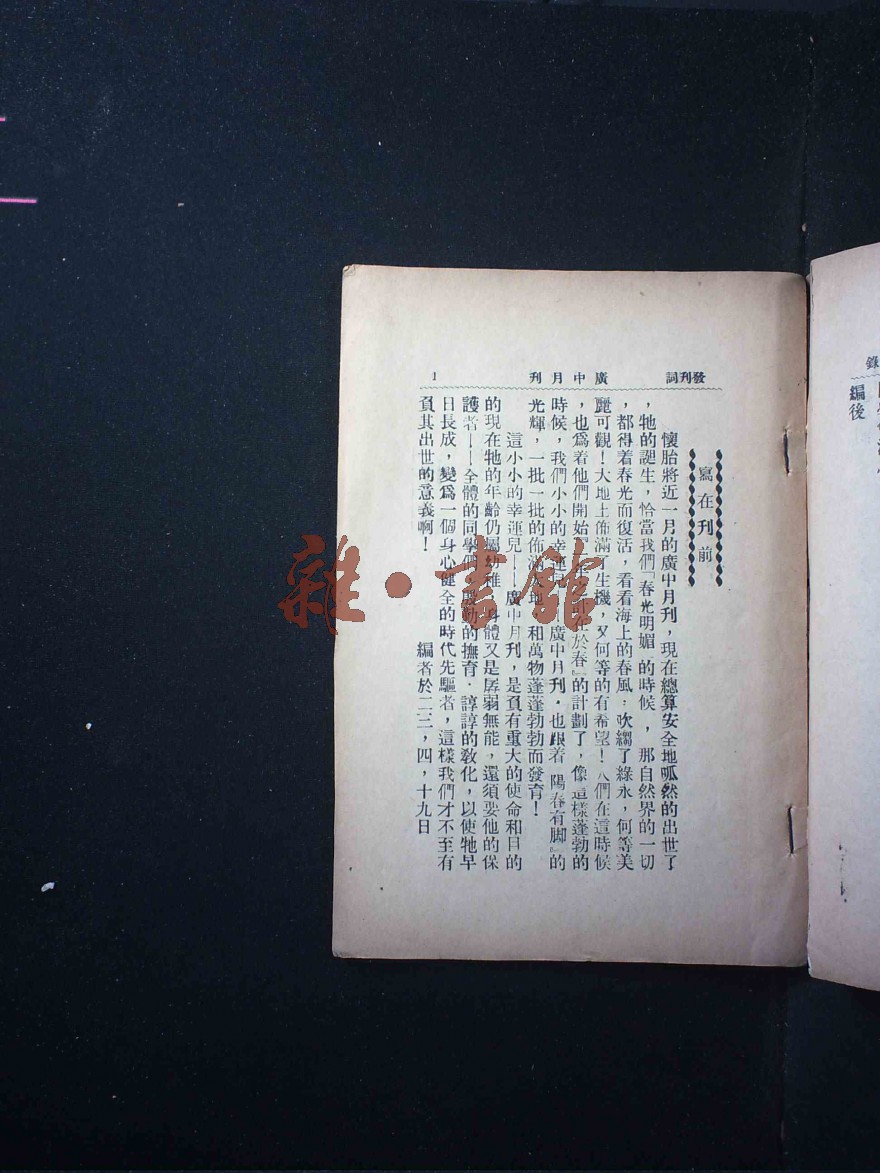 錄
編後
發刊詞 廣中月刊 1
寫在刊前
懷胎將近一月的廣中月刊，現在總算安全地呱然的出世了
，牠的誕生，恰當我們「春光明媚 的時候 ，那自然界的一切
，都得着春光而復活，看看海上的春風，吹縐了綠水，何等美
麗可觀！大地上佈滿了生機，又何等的有希望！人們在這時候
，也爲着他們開始 在於春』的計劃了，像 這樣蓬勃的
時候，我們小小的幸運 廣中月刊，也跟着 陽春有脚』的
光輝，一批一批的佈滿 地 和萬物蓬蓬勃勃而發育！
這小小的幸運兒——廣中月刊，是負有重大的使命和目的
的現在牠的年齡仍屬幼稚 身體又是孱弱無能，還須要他的保
護者——全體的同學們 殷勤的撫育．諄諄的敎化，以使牠早
日長成，變爲一個身心健全的時代先驅者，這樣我們才不至有
負其出世的意義啊！
編者於二三，四，十九日
雜·書館